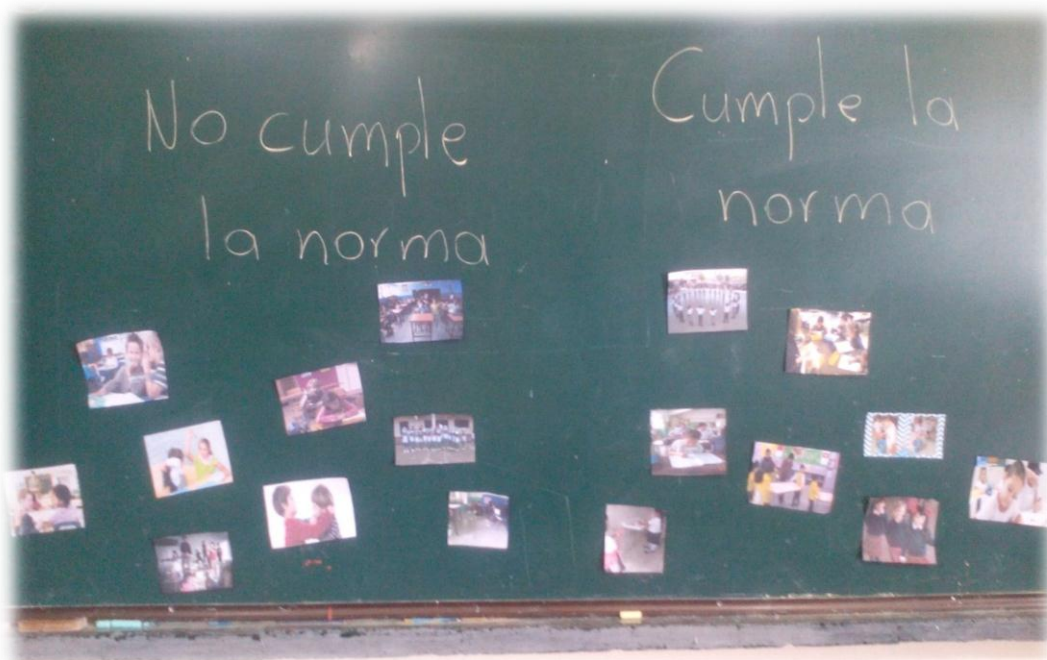 No cumple
la norma
Cumple la
norma